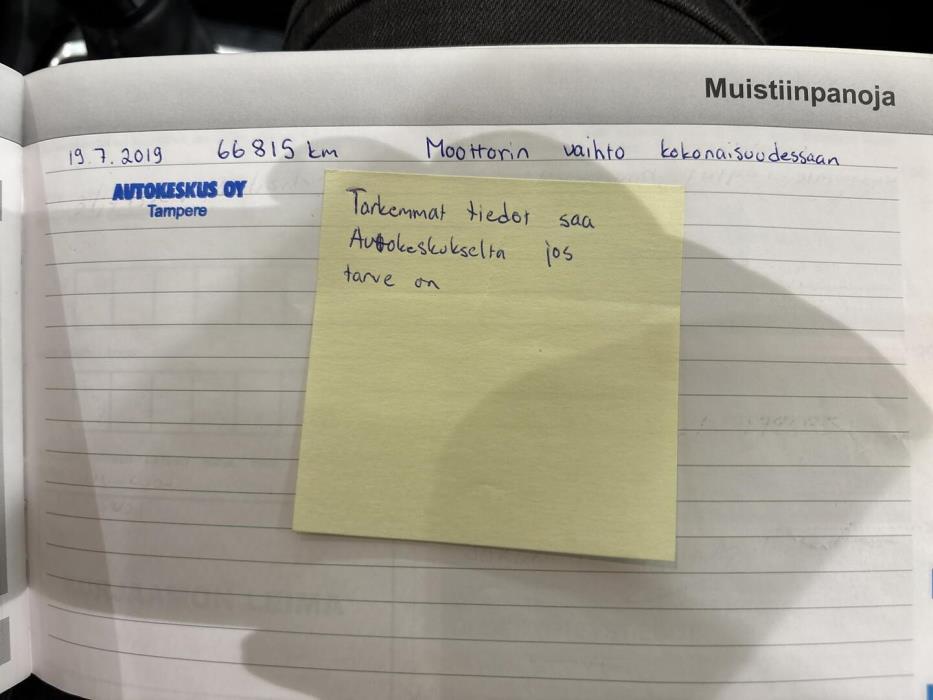 Muistiinpanoja
19.7.2019 66815 km Moottorin vaihto kokonaisuudessaan
AUTOKESKUS OY
Tampere
Tarkemmat tiedot saa
Autokeskukselta jos
tarve on